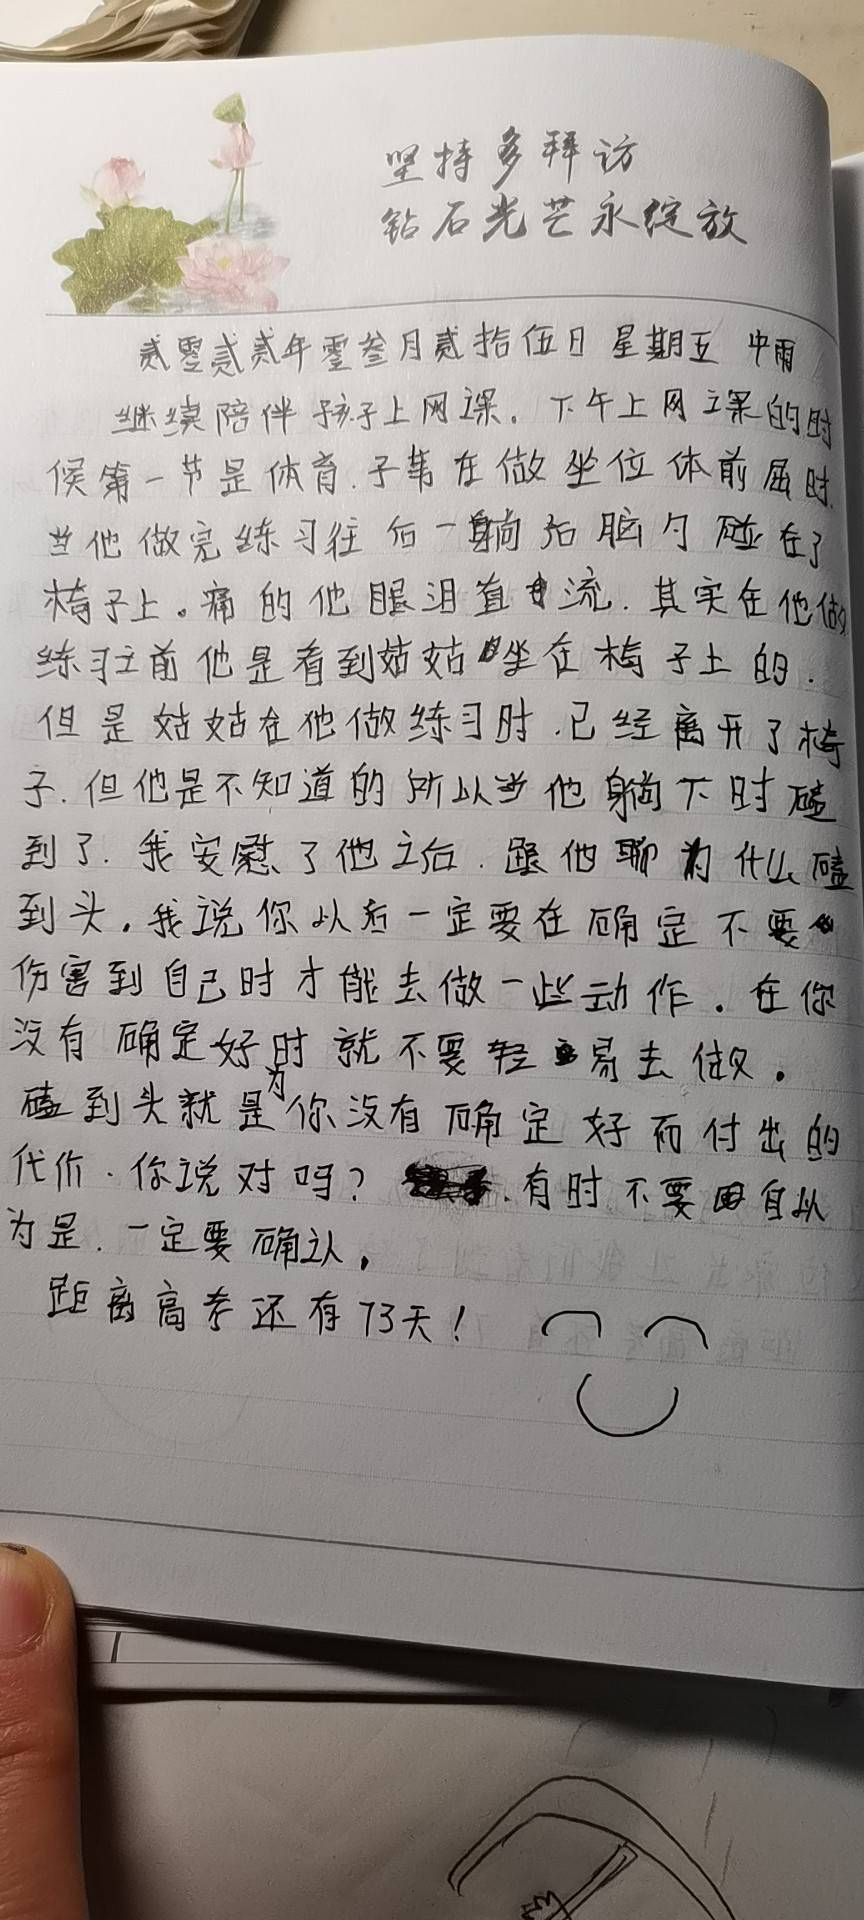 坚持多拜访
钻石光芒永绽放
贰零贰贰年零叁月贰拾伍日 星期五 中雨
继续陪伴孩子上网课。下午上网课的时
候第一节是体育.子苇在做坐位体前屈时.
当他做完练习往后一躺后脑勺碰在了
椅子上。痛的他眼泪直流.其实在他做
练习之前他是看到姑姑坐在椅子上的.
但是姑姑在他做练习时.已经离开了椅
子.但他是不知道的所以当他躺下时磕
到了.我安慰了他之后.跟他聊为什么磕
到头.我说你以后一定要在确定不要
伤害到自己时才能去做一些动作.在你
没有确定好时就不要轻易去做.
磕到头就是为你没有确定好而付出的
代价.你说对吗?.有时不要自以
为是.一定要确认.
距离高考还有73天!